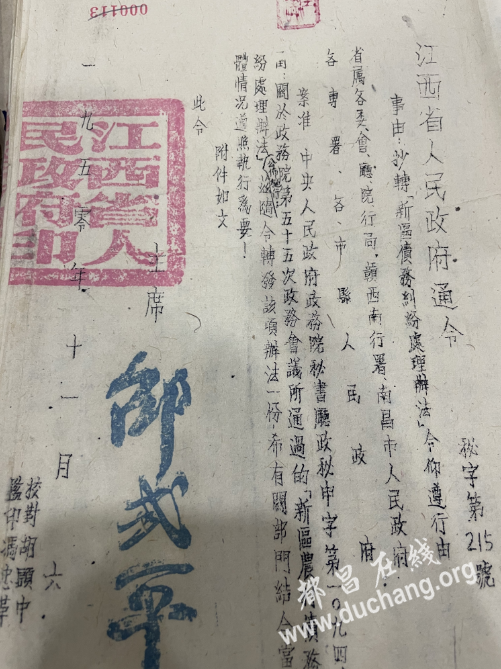 000113
江西省人民政府通令
秘字第215號
事由:抄轉「新區債務糾紛處理辦法」令仰遵行由
省屬各委、會、廳、院、行、司、贛西南行署、南昌市人民政府、
各專署、各市縣人民政府
案准 中央人民政府政務院秘書廳政秘申字第一〇九四
由:關於政務院第五十五次政務會議所通過的「新區農村債務
紛處理辦法」隨令轉發該項辦法一份,希有關部門結合當
體情况遵照執行為要!
附件如文
此令
主席
邵式平
一九五零年十一月六
校對胡顯中
監印馮忠
江西省人民政府印
都昌在线
www.duchang.org